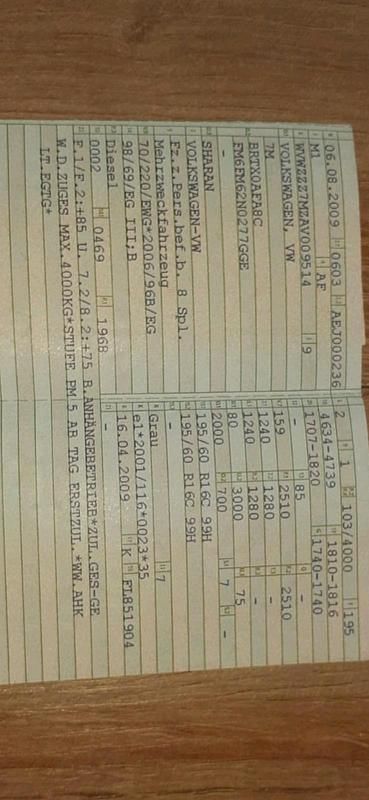 06.08.2009 0603 AEJ000236
M1 AF
WVWZZZ7MZAV009514 9
VOLKSWAGEN, VW
7M
BRTX0AFA8C
FM6FM62N0277GGE
-
SHARAN
VOLKSWAGEN-VW
Fz.z.Pers.bef.b. 8 Spl.
Mehrzweckfahrzeug
70/220/EWG*2006/96B/EG
98/69/EG III;B
Diesel
0002 0469 1968
2 1 103/4000 195
4634-4739 1810-1816
1707-1820 1740-1740
- 85 -
159 2510 2510
1240 1280 -
1240 1280 -
80 3000 75
2000 700 7 -
195/60 R16C 99H
195/60 R16C 99H
-
Grau 7
e1*2001/116*0023*35
16.04.2009 K FL851904
-
F.1/F.2:+85 U. 7.2/8.2:+75 B.ANHÄNGEBETRIEB*ZUL.GES-GE
W.D.ZUGES MAX.4000KG*STUFE PM 5 AB TAG ERSTZUL.*WW.AHK
LT.EGTG*